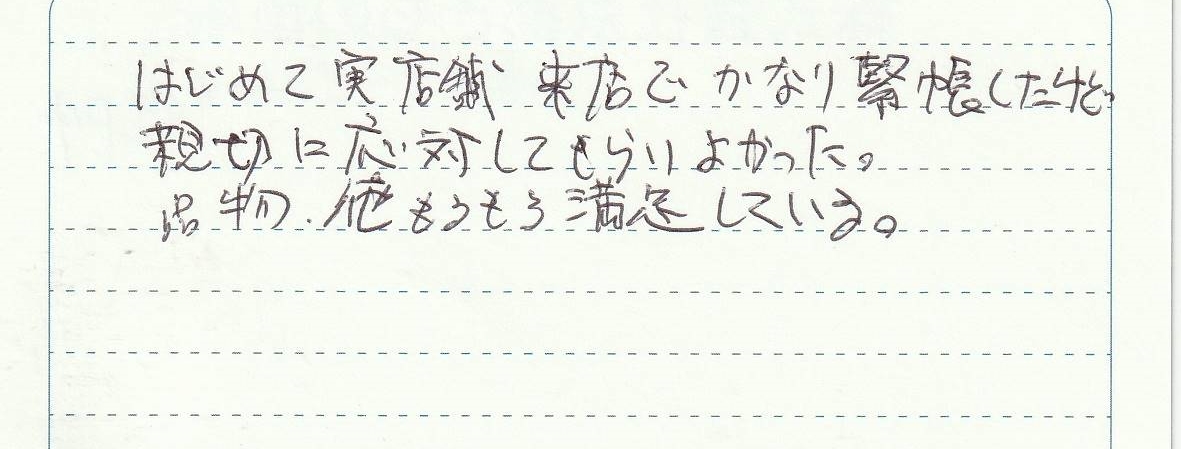 はじめて実店舗 来店でかなり緊張したけど
親切に応対してもらいよかった。
品物、他もろもろ満足している。